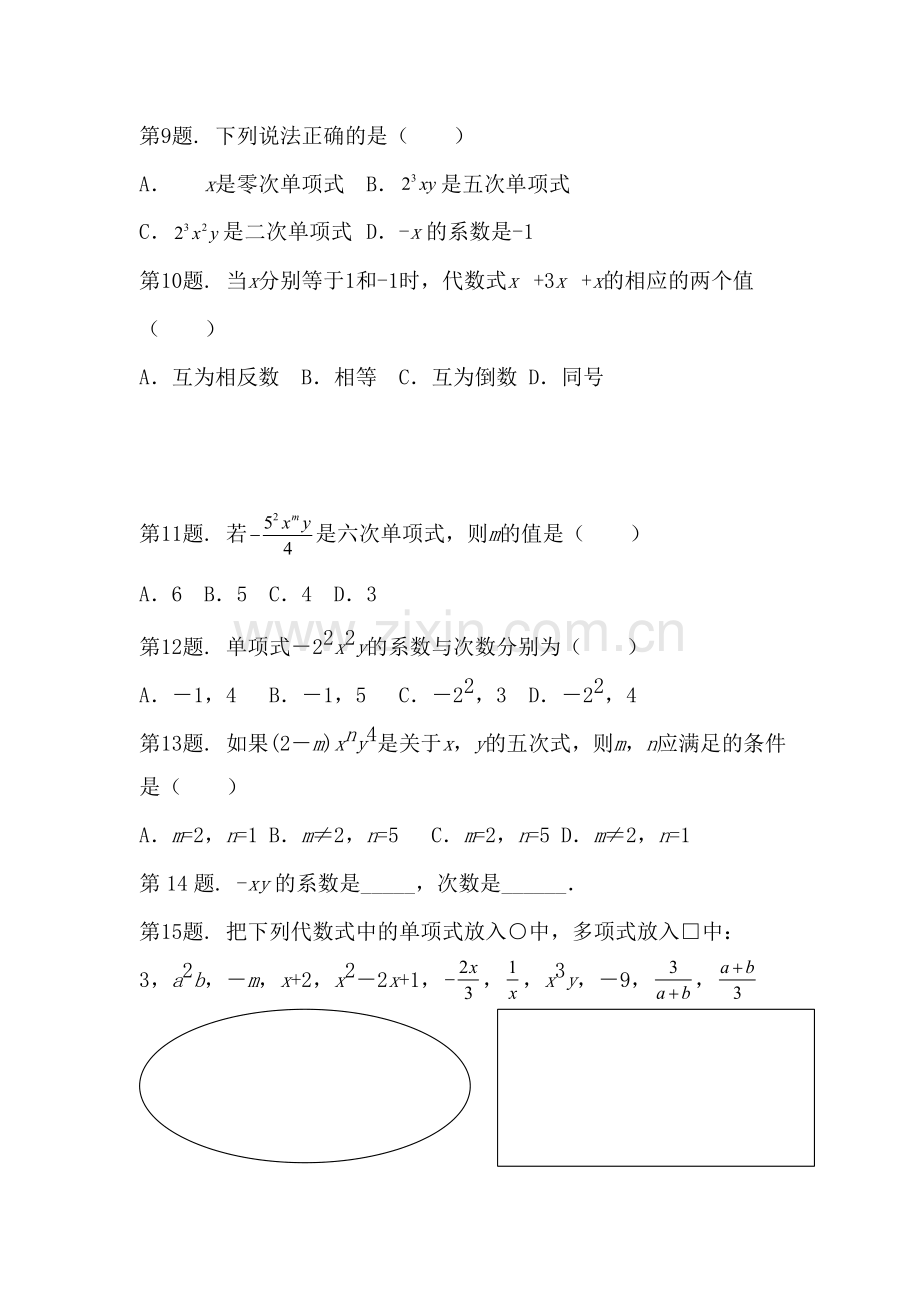 第9题. 下列说法正确的是（　　）
A.　　x是零次单项式　B. 2³xy是五次单项式
C. 2³x²y是二次单项式 D. -x的系数是-1
第10题. 当x分别等于1和-1时，代数式x +3x +x的相应的两个值
（　　）
A. 互为相反数　B. 相等　C. 互为倒数 D. 同号
第11题. 若-5²xᵐy/4是六次单项式，则m的值是（　　）
A. 6　B. 5　C. 4　D. 3
www.zixin.com.cn
第12题. 单项式－2²x²y的系数与次数分别为（　　）
A. －1，4　B. －1，5　C. －2²，3　D. －2²，4
第13题. 如果(2－m)xⁿy⁴是关于x，y的五次式，则m，n应满足的条件
是（　　）
A. m=2，n=1 B. m≠2，n=5　C. m=2，n=5 D. m≠2，n=1
第14题. -xy的系数是_____，次数是______.
第15题. 把下列代数式中的单项式放入○中，多项式放入□中：
3，a²b，－m，x+2，x²－2x+1，-2x/3，1/x，x³y，－9，3/(a+b)，(a+b)/3